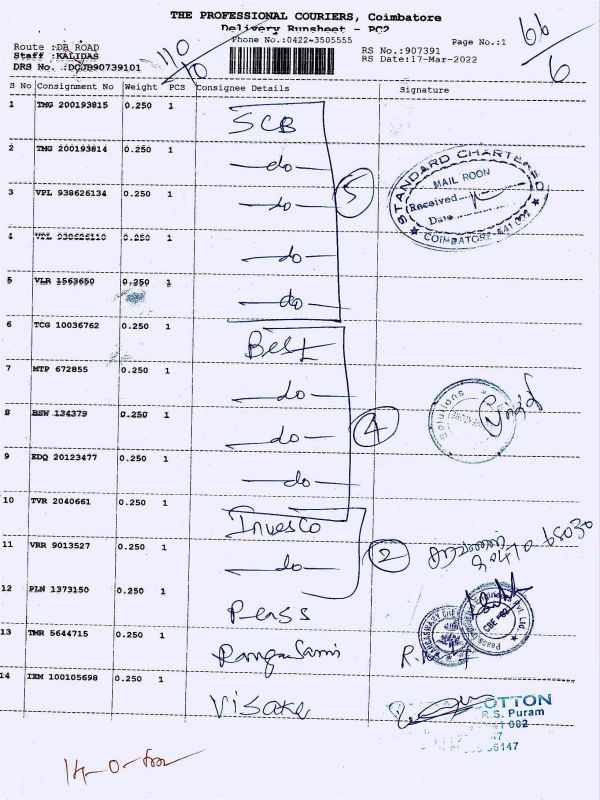 THE PROFESSIONAL COURIERS, Coimbatore
Delivery Runsheet - PC2
Phone No.:0422-3505555
Page No.:1
66/6
110/10
Route :DB ROAD
RS No.:907391
Staff :KALIDAS
RS Date:17-Mar-2022
DRS No. :DCJB90739101
S No Consignment No Weight PCS Consignee Details Signature
1 TMG 200193815 0.250 1 SCB
2 TMG 200193814 0.250 1 —do—
3 VPL 938626134 0.250 1 —do—
5
STANDARD CHARTERED
MAIL ROOM
Received
Date
COIMBATORE-641 002
4 VPL 938626110 0.250 1 —do—
5 VLR 1563650 0.250 1 —do—
6 TCG 10036762 0.250 1 Best
7 MTP 672855 0.250 1 —do—
4
Solutions
8 BSW 134379 0.250 1 —do—
9 EDQ 20123477 0.250 1 —do—
10 TVR 2040661 0.250 1 Invesco
11 VRR 9013527 0.250 1 —do—
2
12 PLN 1373150 0.250 1 Perss
13 TMR 5644715 0.250 1
14 IXM 100105698 0.250 1 Visaka
COTTON
R.S. Puram